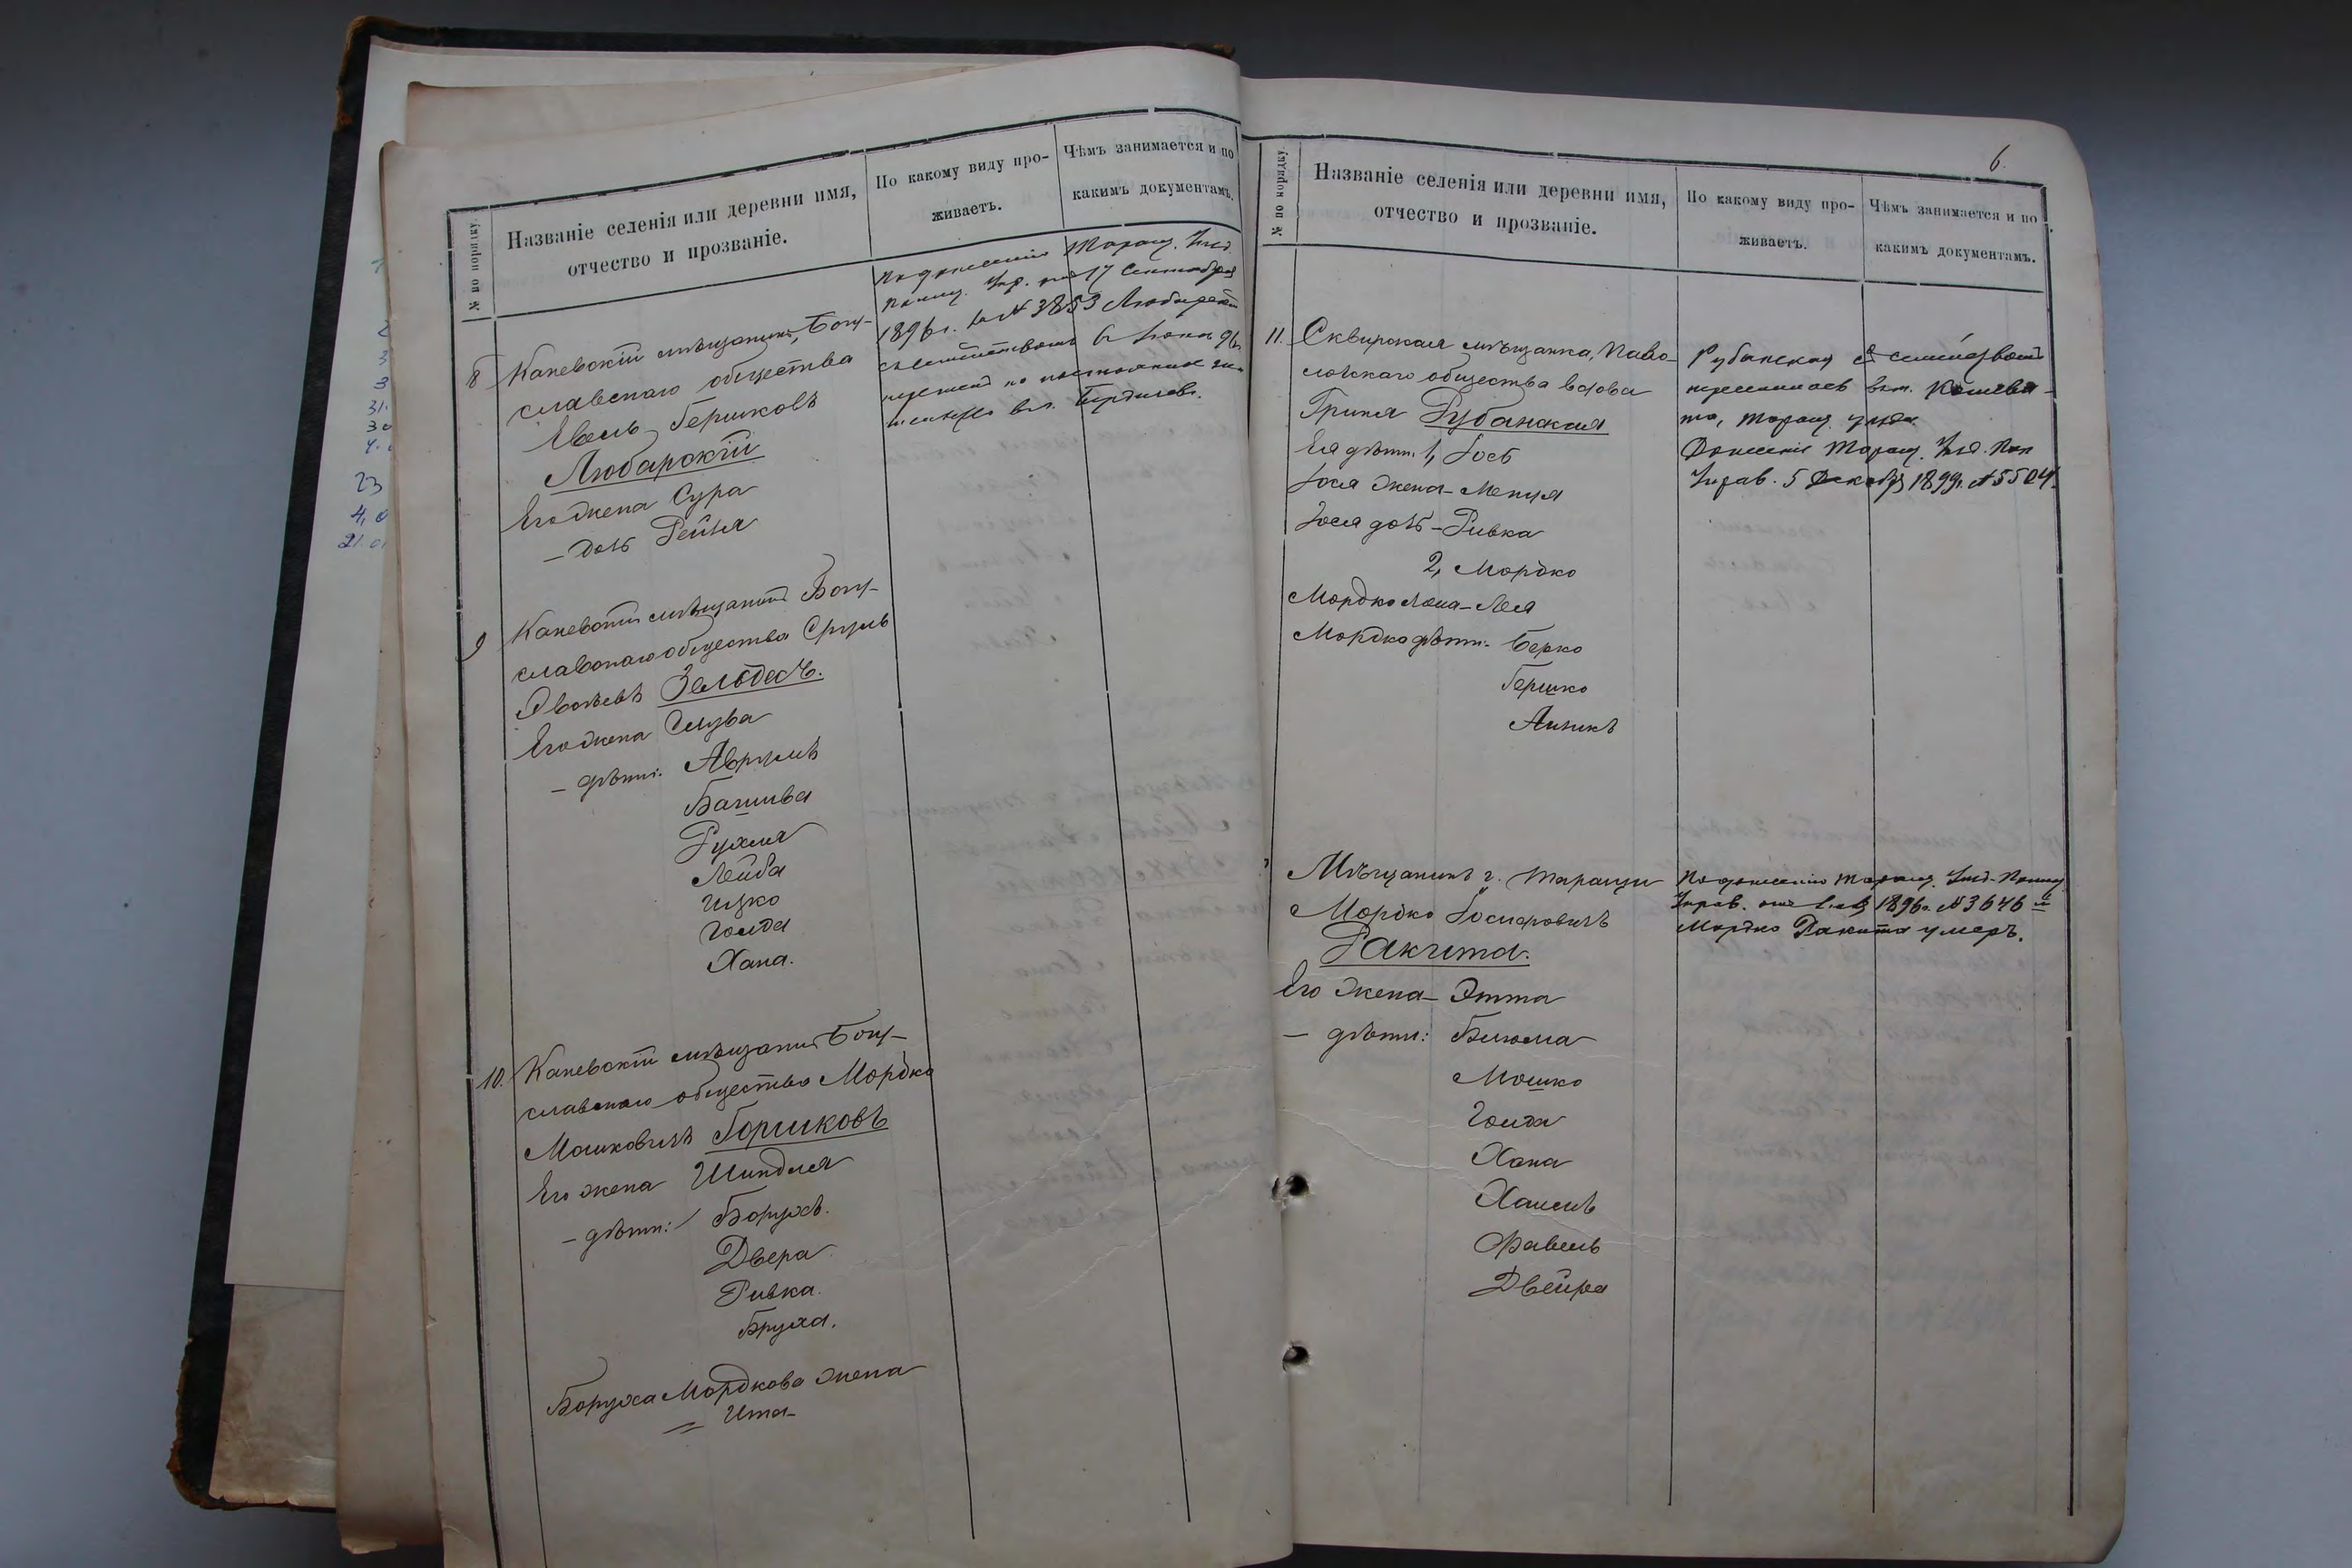 № по порядку.
Названіе селенія или деревни имя,
отчество и прозваніе.
По какому виду про-
живаетъ.
Чѣмъ занимается и по
какимъ документамъ.
8 Каневскій мѣщанинъ, Богу-
славскаго общества
Евель Гершковъ
Любарскій
Его жена Сура
– дочь Рейзя
По донесенію Таращ. Уѣзд.
Полиц. Упр. отъ 17 Сентября
1896 г. за № 3853 Любарскій
съ семействомъ
на постоянное жи-
тельство въ г. Бердичевъ.
9 Каневскій мѣщанинъ Богу-
славскаго общества Сруль
Зельдесъ.
Его жена Слува
– дѣти: Аврумъ
Башива
Рухля
Лейба
Ицко
Голда
Хана.
10. Каневскій мѣщанинъ Богу-
славскаго общества Мордко
Мошковичъ Горшковъ
Его жена Шиндля
– дѣти: Борухъ.
Двера
Ривка.
Бруха.
Боруха Мордкова жена
Ита
6.
№ по порядку
Названіе селенія или деревни имя,
отчество и прозваніе.
По какому виду про-
живаетъ.
Чѣмъ занимается и по
какимъ документамъ.
11. Сквирская мѣщанка, Паво-
лочскаго общества вдова
Гриня Рубанская
Ея дѣти: 1, Іось
Іося жена – Менця
Іося дочь – Ривка
2, Мордко
Мордко жена – Лея
Мордко дѣти: Берко
Гершко
Аизикъ
Рубанская съ семействомъ
переселилась въ м. Кошева-
то, Таращ. уѣзда.
Донесеніе Таращ. Уѣзд. Пол.
Управ. 5 Декабря 1899 г. № 5504.
Мѣщанинъ г. Таращи
Мордко Іосиповичъ
Ракита.
Его жена – Этта
– дѣти: Блюма
Мошко
Голда
Хана
Хаимъ
Фавель
Двейра
По донесенію Таращ. Уѣзд. Полиц.
Управ. отъ 1896 г. № 3646
Мордко Ракита умеръ.